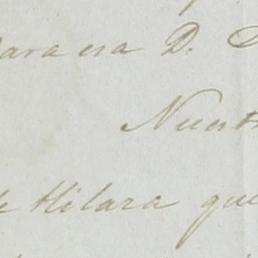 para esa D.
Nuest
de Hilara que